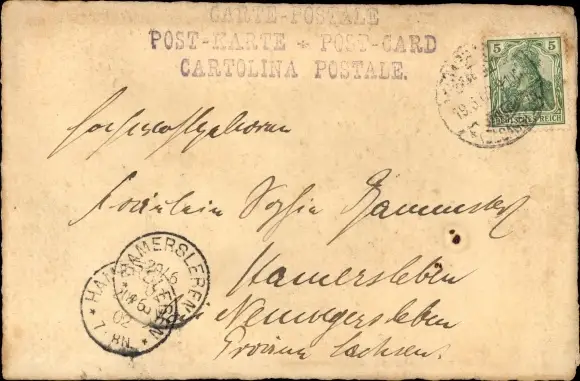 CARTE-POSTALE
POST-KARTE + POST-CARD
CARTOLINA POSTALE.
5 5
DEUTSCHES REICH
Hochwohlgeboren
Fräulein Sophie
Hamersleben
Neuwegersleben
Provinz Sachsen.
HAMERSLEBEN
HAM
02
7-8N.